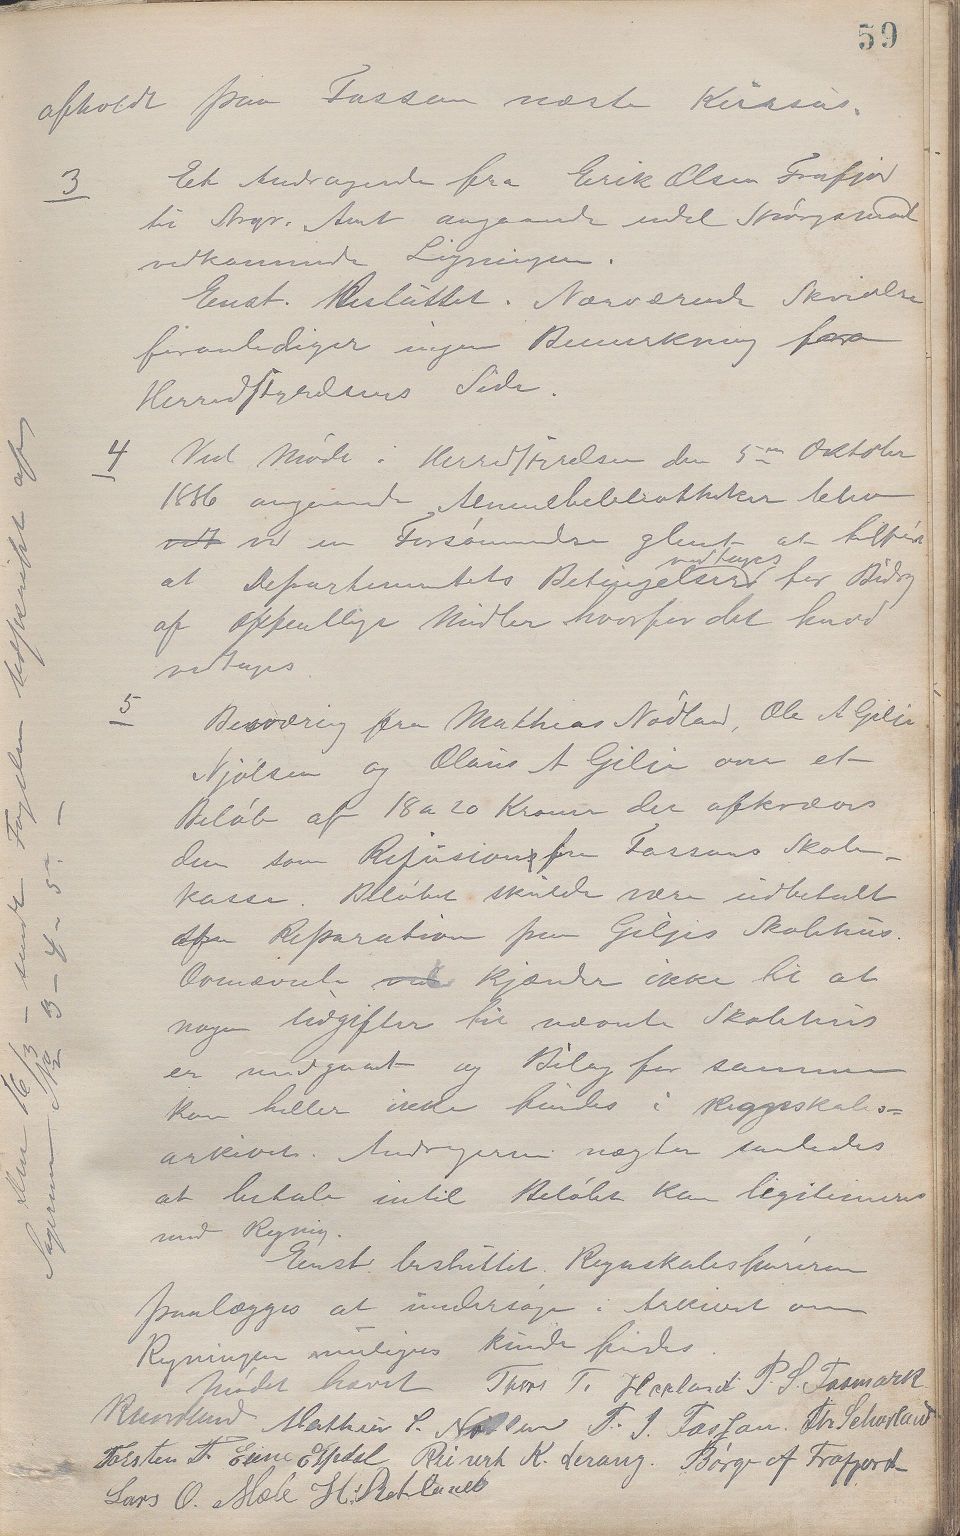 59
afholdt paa Fossan næste Kirssus.
3 Et Andragende fra Eerik Olsen Frafjor
til Amt angaaende endel Spörgsmaal
vedkommende Ligningen.
Eenst. Besluttet. Nærværende Skrivelse
foranlediger ingen Bemerkning fra
Herredstyrelsens Side.
4 Ved Möde i Herredstyrelsen den 5te Oktober
1886 angaaende Almuebibliotheker blev
ved en Forsömmelse glemt at tilföie
at Departementets Betingelser vedtages for Bidrag
af offentlige Midler hvorfor det herved
vedtages
5 Besværing fra Mathias Nödland, Ole A Gilje
Njölsen og Olaus A Gilje over et
Belöb af 18 a 20 Kroner der afkræves
dem som Refusion fra Fossans Skole-
kasse. Belöbet skulde være udbetalt
Reparation paa Giljes Skolehus.
Ovnævnte kjænder ikke til at
nogen Udgifter til nævnte Skolehus
er medgaaet og Bilag for samme
kan heller ikke findes i Regnskabs-
arkivet. Andragerne nægter saaledes
at betale intil Belöbet kan legitimeres
med Regning.
Eenst. besluttet. Regnskabsföreren
paalægges at undersöge i Arkivet om
Regningen muligens kunde findes.
Mödet hævet Thore T. Haaland P. S. Fosmark
Mathias S. T. J. Fossan.
Torsten T. Eiene Espedal Reinert K. Börge A Frafjord
Lars O. Mæle H.
den 16/3 - sendt Fogden Udskrift af
Sagerne No 3 - 4 - 5 -